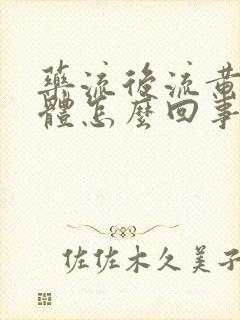 藥流後流黃
體怎麼回事
佐佐木久美子